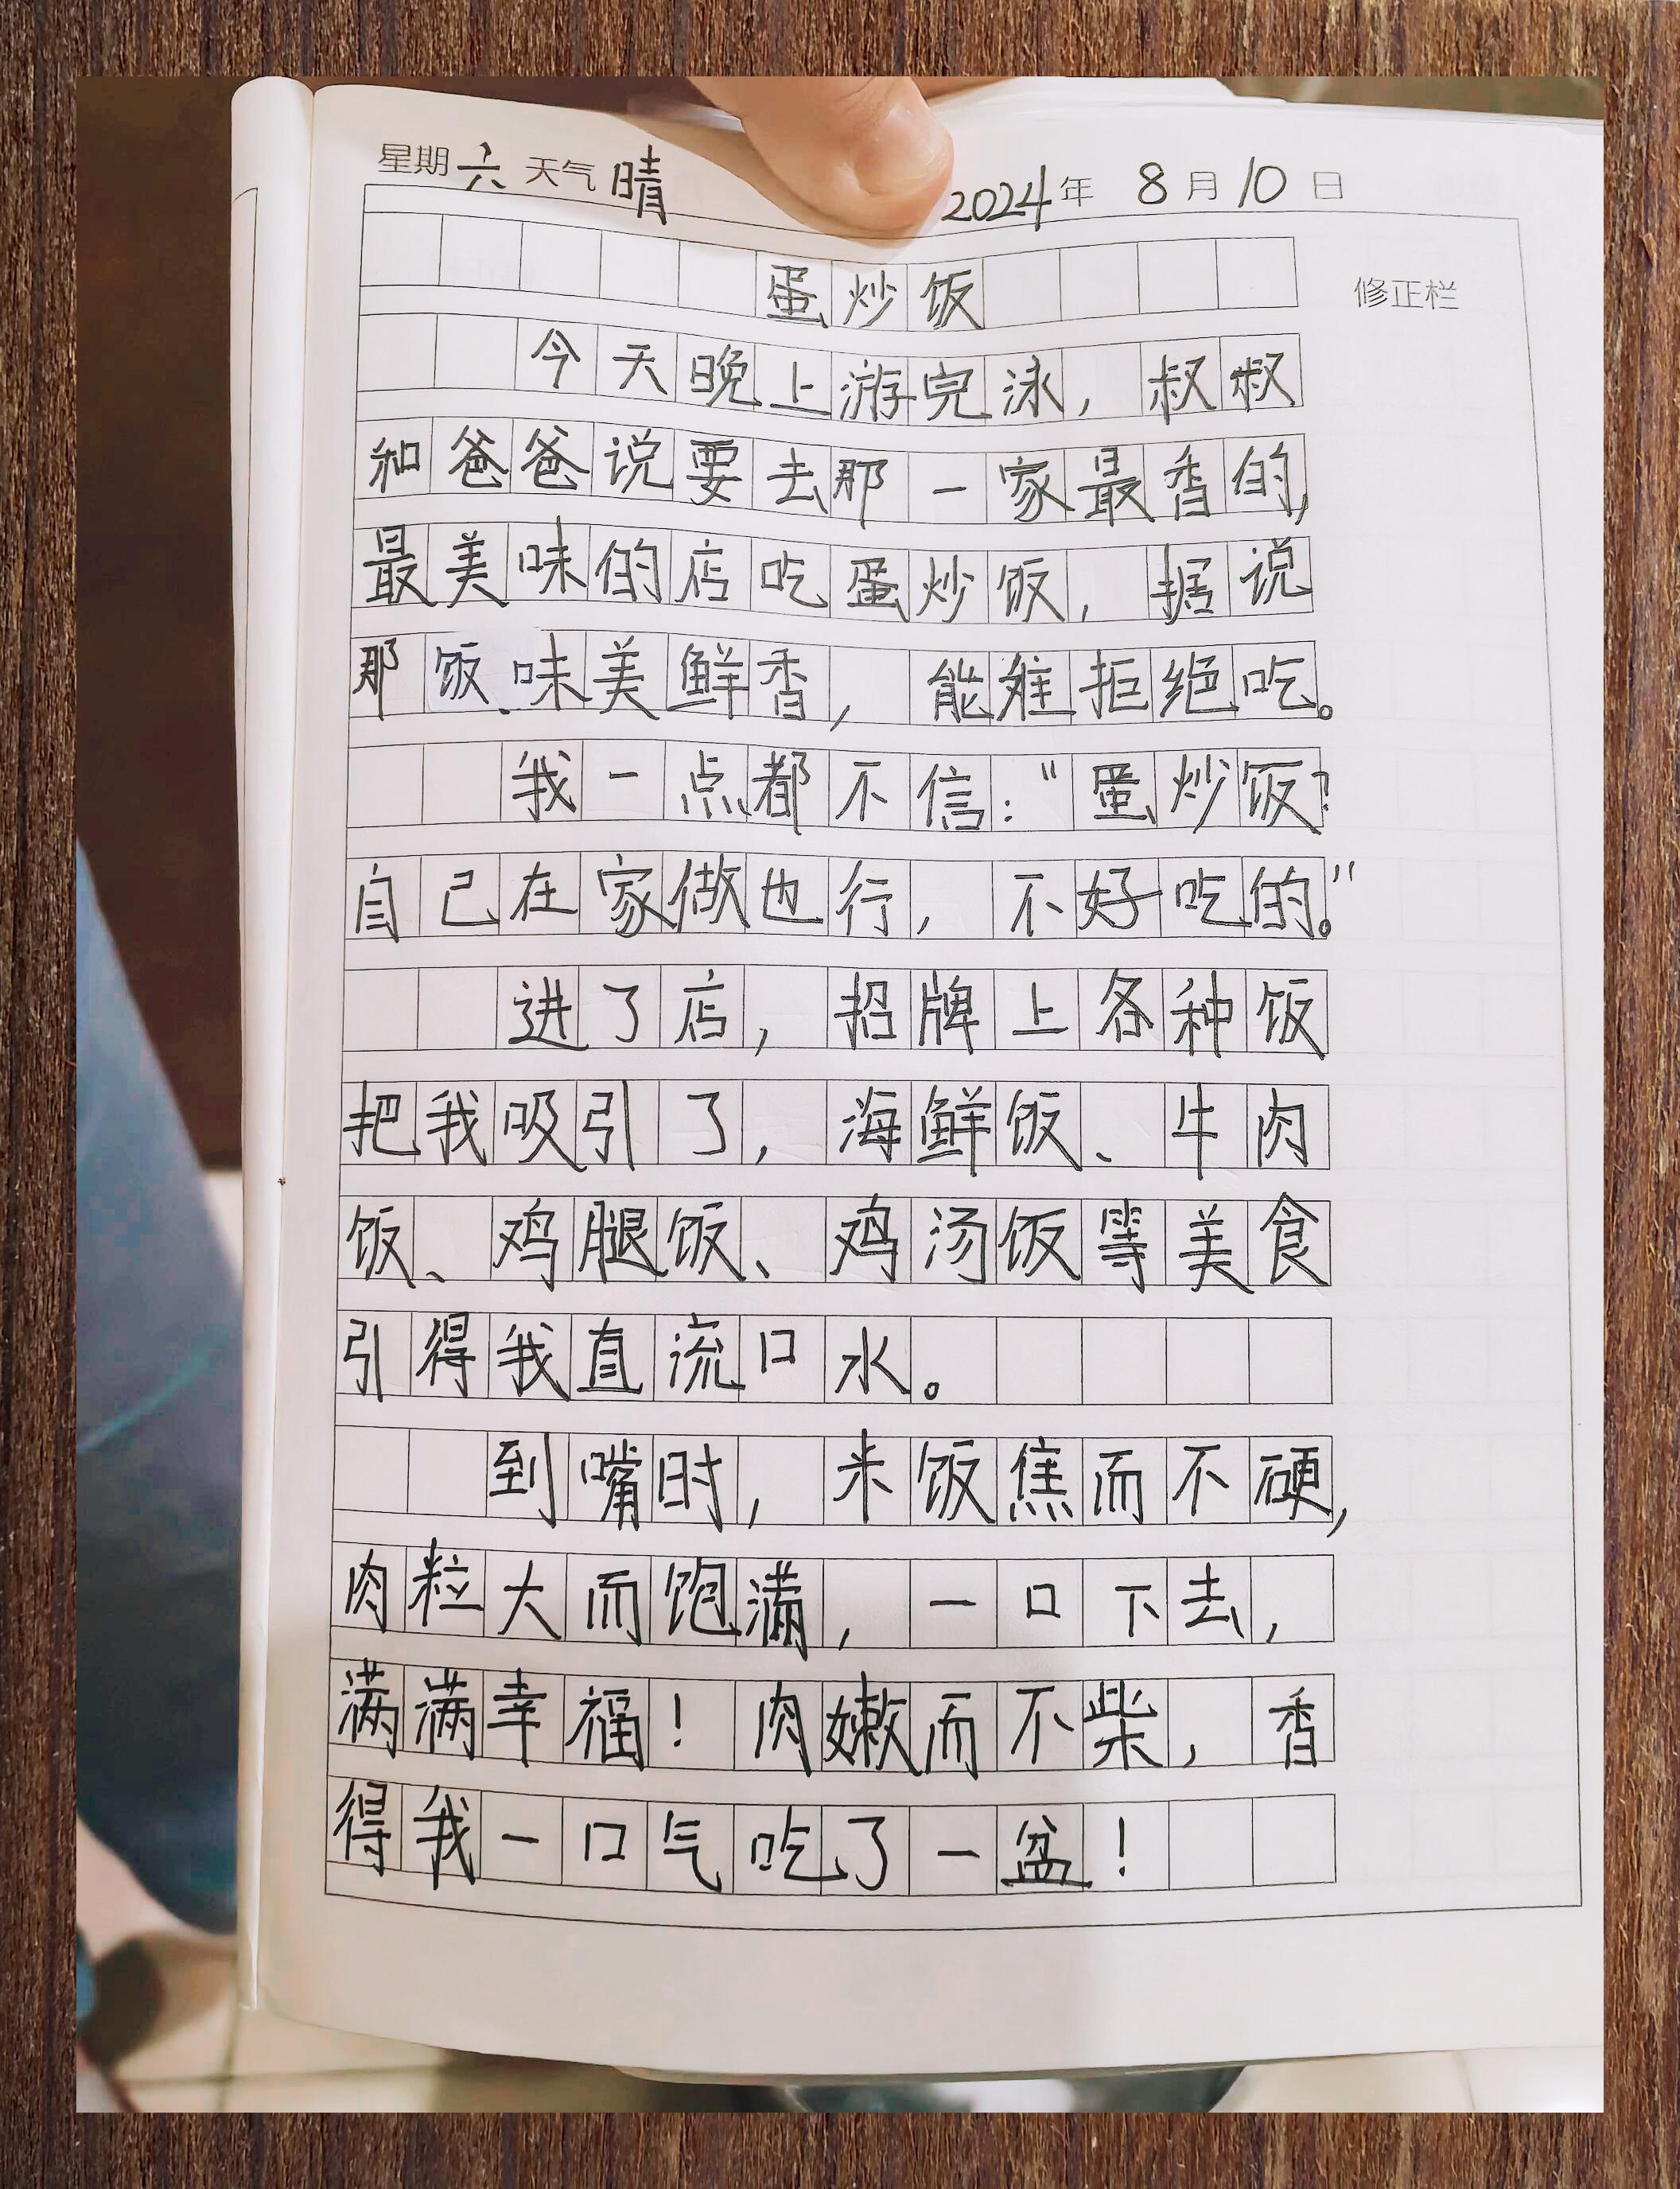 星期六 天气晴 2024年 8月10日
蛋炒饭
修正栏
今天晚上游完泳，叔叔
和爸爸说要去那一家最香的，
最美味的店吃蛋炒饭，据说
那饭味美鲜香，能难拒绝吃。
我一点都不信：“蛋炒饭？
自己在家做也行，不好吃的。”
进了店，招牌上各种饭
把我吸引了，海鲜饭、牛肉
饭、鸡腿饭、鸡汤饭等美食
引得我直流口水。
到嘴时，米饭焦而不硬，
肉粒大而饱满，一口下去，
满满幸福！肉嫩而不柴，香
得我一口气吃了一盆！